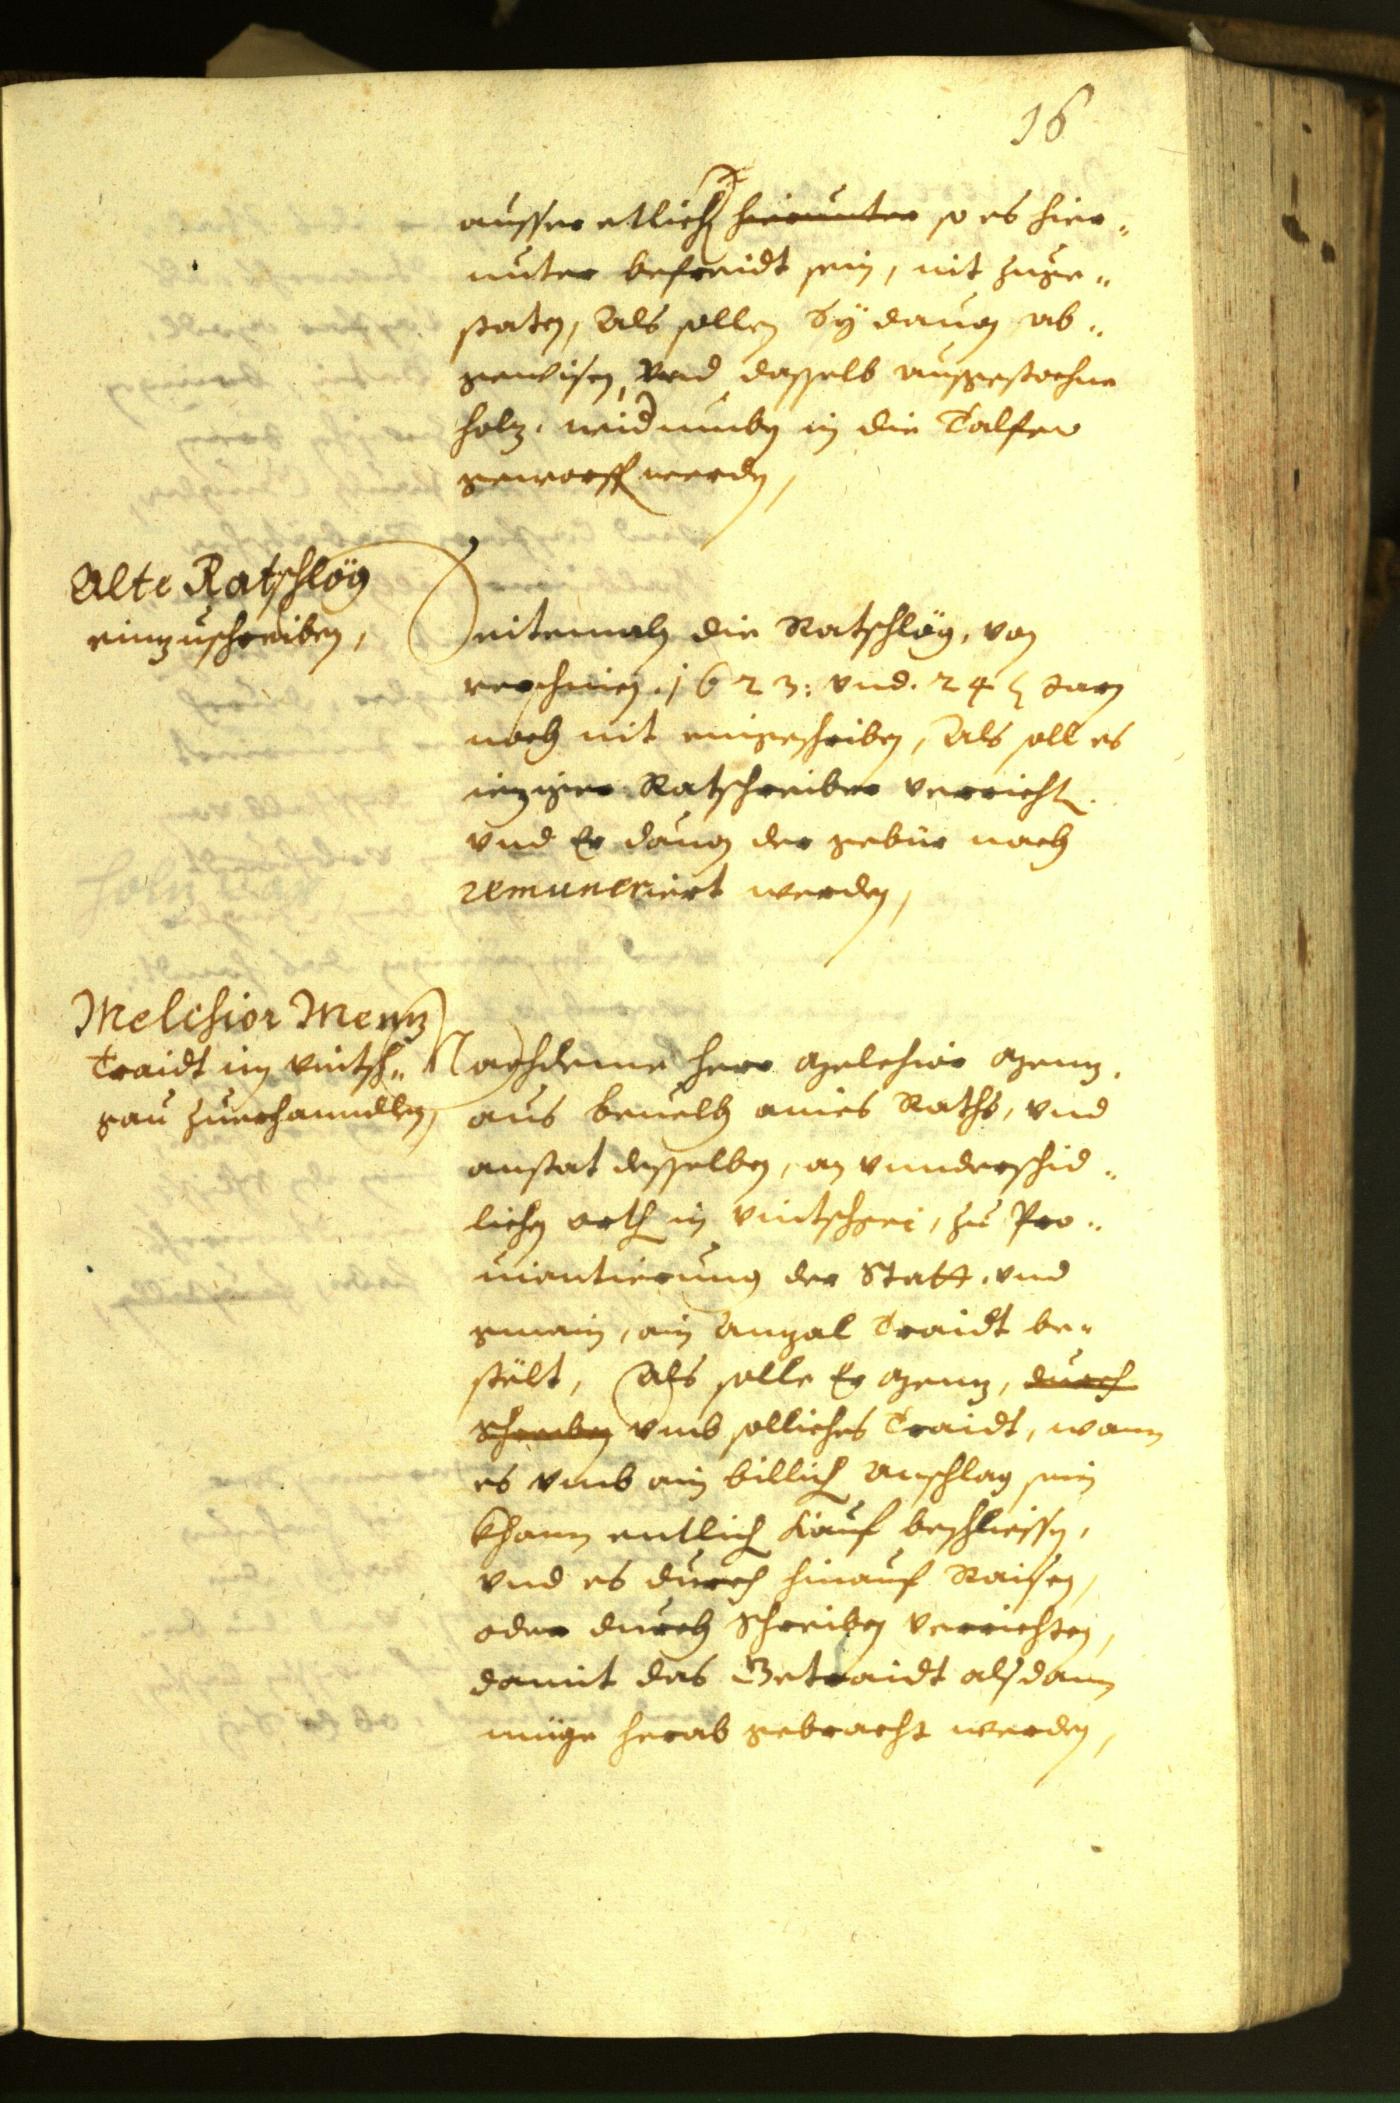 16
ausser etlich hierunter so es hier„
unter befreidt sein, nit zuge„
staten, Als sollen Sÿ dauon ab„
gewisen, Vnd dasselb ausgestochne
holz, widerumben in die Talfer
geworffen werden,
Alte Ratschlög
einzuschreiben,
Seitemalen die Ratschlög, von
verschinen 1623: vnd. 24 Jarn
noch nit eingeschriben, Als soll es
ieziger Ratschreiber verricht
vnd Er dauon der gebür nach
remuneriert werden,
Melchior Menz
Traidt im vintsch„
gau zuerhanndlen,
Nachdeme herr Melchior Menz,
aus beuelch aines Raths, vnd
anstat desselben, an vnnderschid„
lichen orth in vintschgei, zu Pro„
uiantierung der Statt vnd
gmain, ain Anzal Traidt be„
stëlt, Als solle Er Menz, durch
Schreiben vmb solliches Traidt, wann
es vmb ain billich Anschlag sein
khann entlich kauf beschliessen,
vnd es durch hinauf Raisen,
oder durch Schreiben verrichten,
damit das Getraidt alsdann
müge herab gebracht werden,